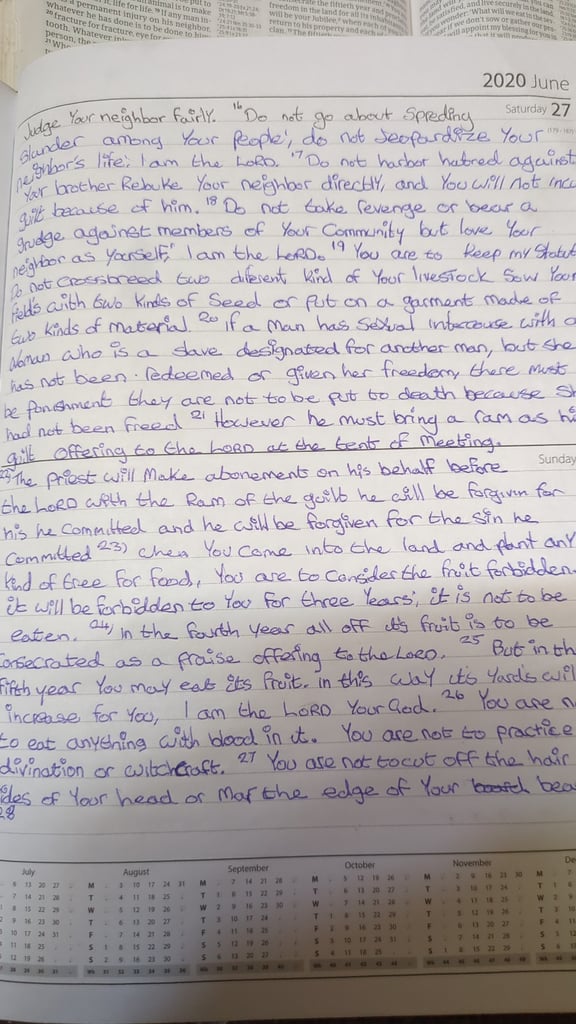 2020 June
Saturday 27
Judge Your neighbor Fairly. 16 Do not go about Spreding
Slander among Your People, do not Jeopardize Your (179 - 187)
neighbor's life: I am the LORD. 17 Do not harbor hatred against
Your brother Rebuke Your neighbor directly, and You will not incu
guilt because of him. 18 Do not take revenge or bear a
grudge against members of Your Community but love Your
neighbor as Yourself; I am the LORD. 19 You are to keep my Statut
Do not Crossbreed two diferent kind of Your livestock Sow Your
fields with two Kinds of Seed or Put on a garment made of
two kinds of material. 20 if a man has sexual intercouse with a
Woman who is a slave designated for another man, but she
has not been redeemed or given her freedom, there must
be Punishment they are not to be put to death because Sh
had not been freed 21 However he must bring a ram as hi
guilt offering to the LORD at the tent of Meeting.
Sunday
22 The Priest will Make abonement on his behalf before
the LORD with the Ram of the guilt he will be forgivin for
his he Committed and he will be forgiven for the Sin he
Committed 23) when You Come into the land and plant any
kind of tree for food, You are to Consider the fruit forbidden.
it will be forbidden to You for three Years; it is not to be
eaten. 24) in the fourth year all off it's fruit is to be
Consecrated as a Praise offering to the LORD. 25 But in th
Fifth year You may eat its fruit. in this way it's Yards wil
increase for You, I am the LORD Your God. 26 You are n
to eat anything with blood in it. You are not to practice
divination or witchcraft. 27 You are not to cut off the hair
ides of Your head or Mar the edge of Your bea
28
July August September October November De